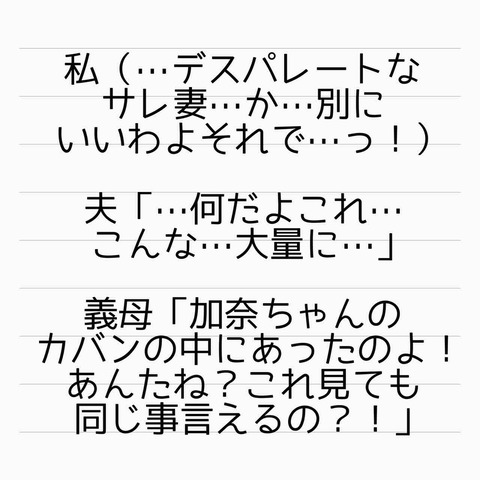 私（…デスパレートな
サレ妻…か…別に
いいわよそれで…っ！）
夫「…何だよこれ…
こんな…大量に…」
義母「加奈ちゃんの
カバンの中にあったのよ！
あんたね？これ見ても
同じ事言えるの？！」